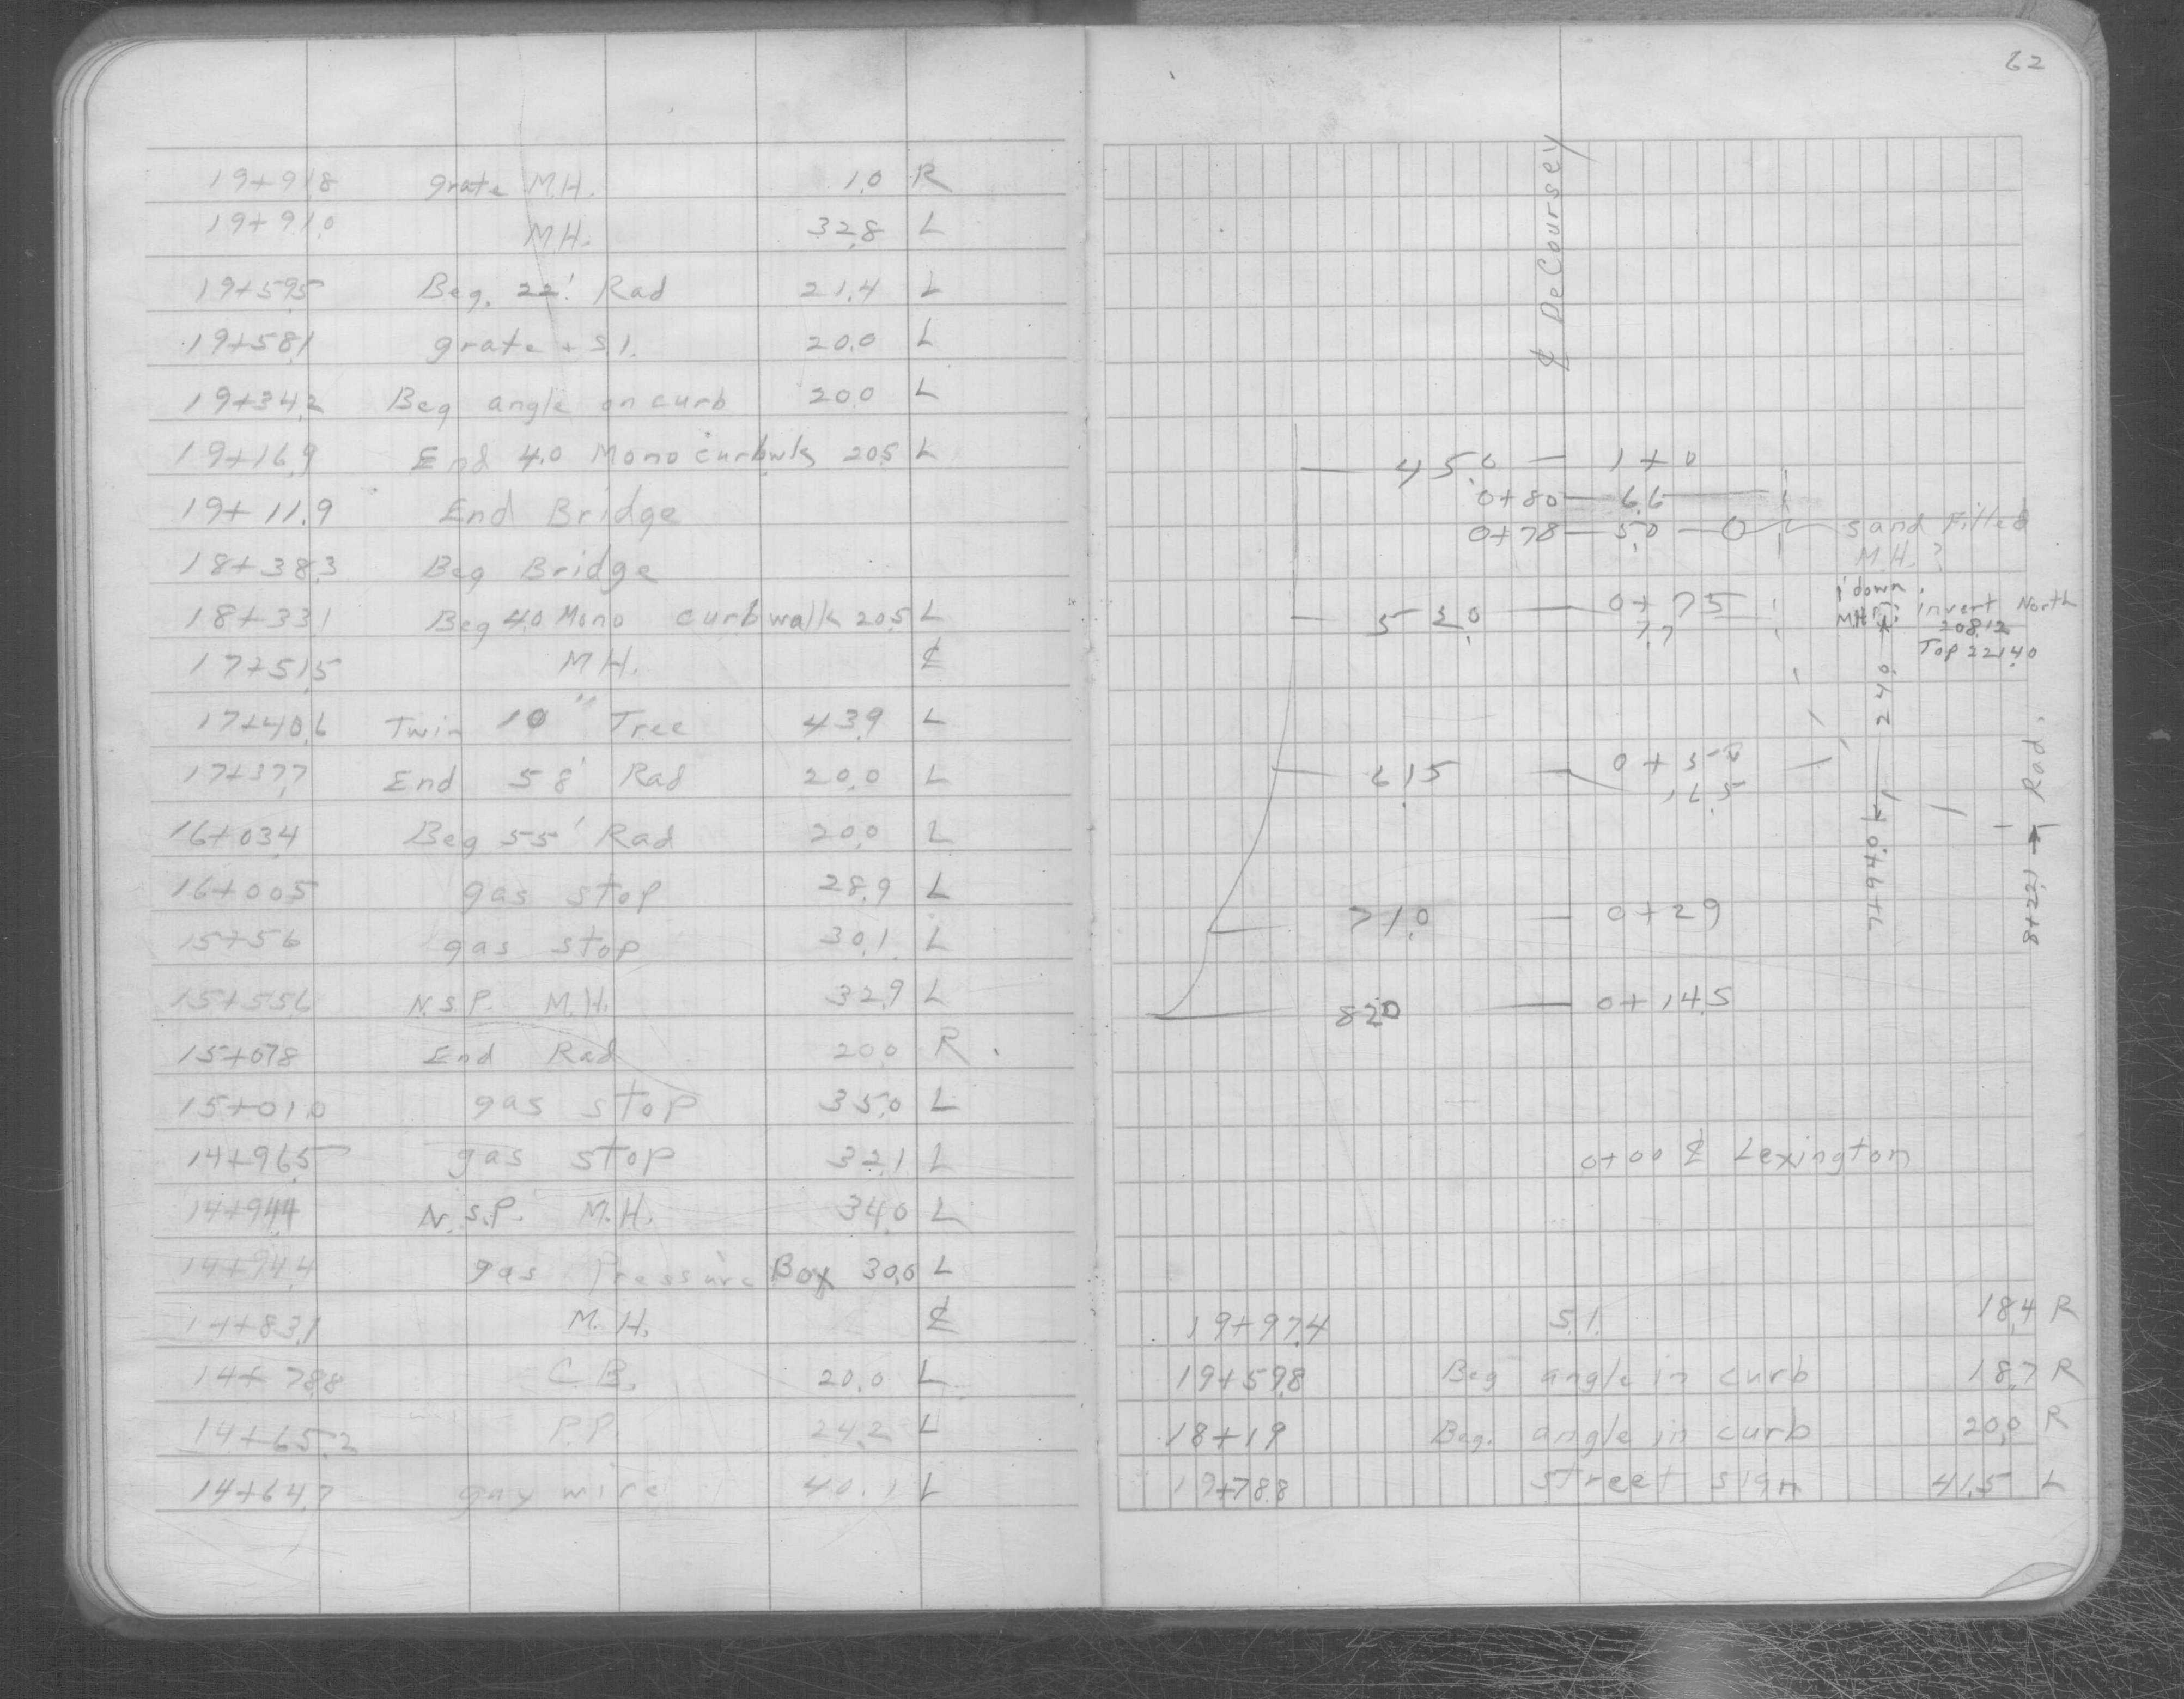 62
19+91.8 grate M.H. 1.0 R
19+91.0 M.H. 32.8 L
19+59.5 Beg. 22' Rad 21.4 L
19+58.1 grate + S.I. 20.0 L
19+34.2 Beg angle on curb 20.0 L
19+16.9 End 4.0 Mono curbwlk 20.5 L
19+11.9 End Bridge
18+38.3 Beg Bridge
18+33.1 Beg 4.0 Mono curbwalk 20.5 L
17+51.5 M.H. ℄
17+40.6 Twin 10" Tree 43.9 L
17+37.7 End 58' Rad 20.0 L
16+03.4 Beg 55' Rad 20.0 L
16+00.5 gas stop 28.9 L
15+56 gas stop 30.1 L
15+55.6 N.S.P. M.H. 32.9 L
15+07.8 End Rad 20.0 R
15+01.0 gas stop 35.0 L
14+96.5 gas stop 32.1 L
14+94.4 N.S.P. M.H. 34.0 L
14+94.4 gas Pressure Box 30.0 L
14+83.1 M.H. ℄
14+78.8 C.B. 20.0 L
14+65.2 P.P. 24.2 L
14+64.7 guy wire 40.1 L
℄ DeCoursey
45.0 1+0
0+80 6.6
0+78 5.0 Sand Filled
M.H. ?
1' down
52.0 0+75 MH invert North
7.7 208.12
Top 221.40
24.0
61.5 0+50
16.5
7+94.0
8+22.1 Rad.
71.0 0+29
82.0 0+14.5
0+00 ℄ Lexington
19+97.4 S.I. 18.4 R
19+59.8 Beg angle in curb 18.7 R
18+19 Beg. angle in curb 20.0 R
19+78.8 Street sign 41.5 L